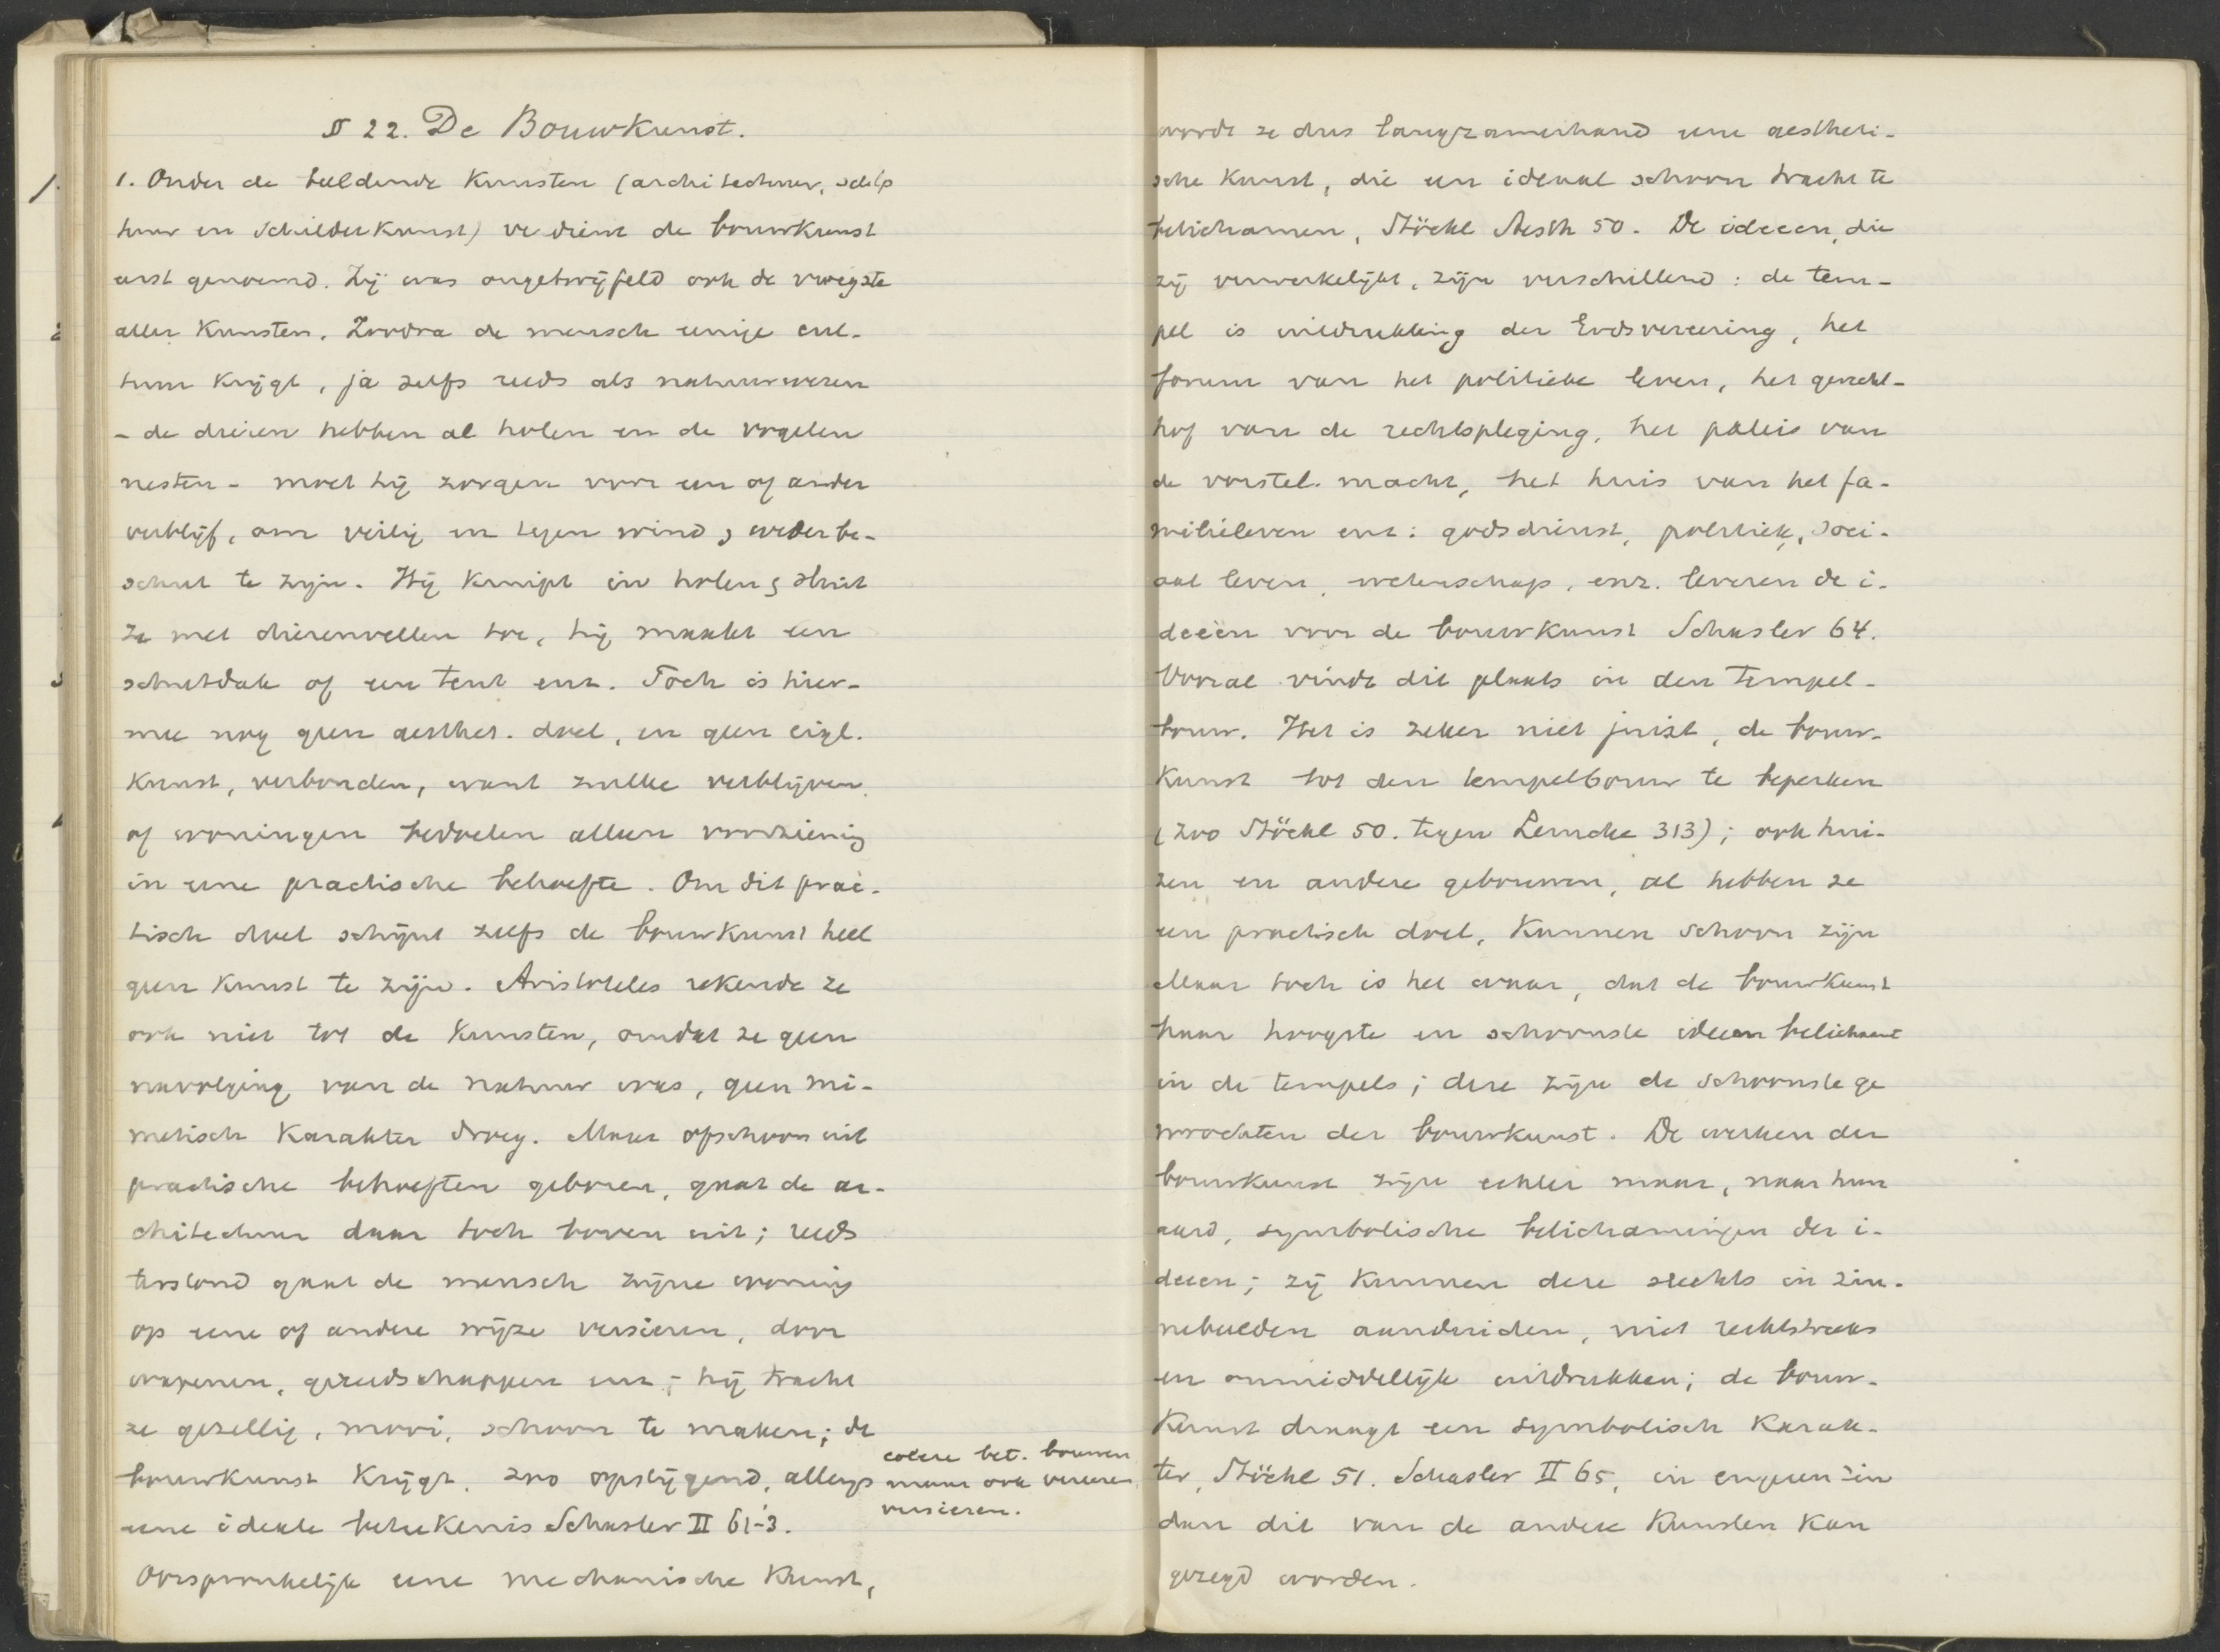 § 22. De Bouwkunst.
1. Onder de beeldende Kunsten (architectuur, sculp
tuur en schilderkunst) verdient de bouwkunst
eerst genoemd. Zij was ongetwijfeld ook de vroegste
aller Kunsten. Zoodra de mensch eenige cul-
tuur krijgt, ja zelfs reeds als natuurwezen
- de dieren hebben al holen en de vogelen
nesten - moet hij zorgen voor een of ander
verblijf, om veilig en tegen wind & weder be-
schut te zijn. Hij kruipt in holen & sluit
ze met dierenvellen toe, hij maakt een
schutdak of een tent enz. Toch is hier-
mee nog geen aesthet. doel, en geen eigl.
Kunst, verbonden, want zulke verblijven
of woningen bedoelen alleen voorziening
in eene practische behoefte. Om dit prac-
tisch doel schijnt zelfs de bouwkunst heel
geen kunst te zijn. Aristoteles rekende ze
ook niet tot de Kunsten, omdat ze geen
navolging van de natuur was, geen mi-
metisch Karakter droeg. Maar ofschoon uit
practische behoeften geboren, gaat de ar-
chitectuur daar toch boven uit; reeds
terstond gaat de mensch zijne woning
op eene of andere wijze versieren, door
wapenen, gereedschappen enz; hij tracht
ze gezellig, mooi, schoon te maken; de
bouwkunst krijgt, zoo opstijgend, allengs
eene ideale beteekenis Schasler II 61-3.
Oorspronkelijk eene mechanische Kunst,
colere bet. bouwen
maar ook vereeren
versieren.
wordt ze dus langzamerhand eene aestheti-
sche Kunst, die een ideaal schoon tracht te
belichamen, Stöckl Aesth 50. De ideeen, die
zij verwerkelijkt, zijn verschillend: de tem-
pel is uitdrukking der Godsvereering, het
forum van het politieke leven, het gerechts-
hof van de rechtspleging, het paleis van
de vorstel. macht, het huis van het fa-
milieleven enz: godsdienst, politiek, soci-
aal leven, wetenschap, enz. leveren de i-
deeën voor de bouwkunst Schasler 64.
Vooral vindt dit plaats in den Tempel-
bouw. Het is zeker niet juist, de bouw-
Kunst tot den tempelbouw te beperken
(zoo Stöckl 50. tegen Lemcke 313); ook hui-
zen en andere gebouwen, al hebben ze
een practisch doel, Kunnen schoon zijn
Maar toch is het waar, dat de bouwkunst
haar hoogste en schoonste ideeen belichaamt
in de tempels; deze zijn de schoonste ge
wrochten der bouwkunst. De werken der
bouwkunst zijn echter maar, naar hun
aard, symbolische belichamingen der i-
deeen; zij Kunnen deze slechts in zin-
nebeelden aanduiden, niet rechtstreeks
en onmiddellijk uitdrukken; de bouw-
Kunst draagt een symbolisch Karak-
ter, Stöckl 51. Schasler II 65, in engeren zin
dan dit van de andere Kunsten kan
gezegd worden.